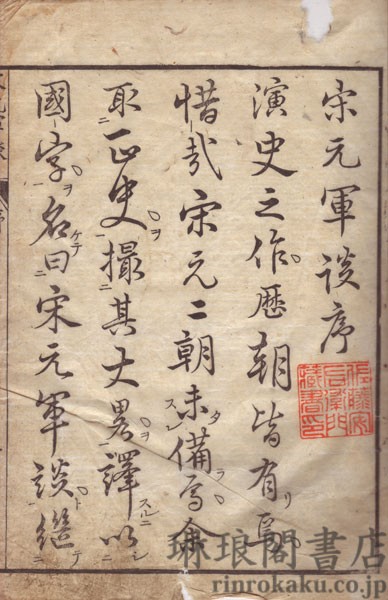 宋元軍談序
演史之作歷朝皆有焉
惜哉宋元二朝未備焉余
取正史撮其大畧譯以
國字名曰宋元軍談繼
琳琅閣書店
rinrokaku.co.jp